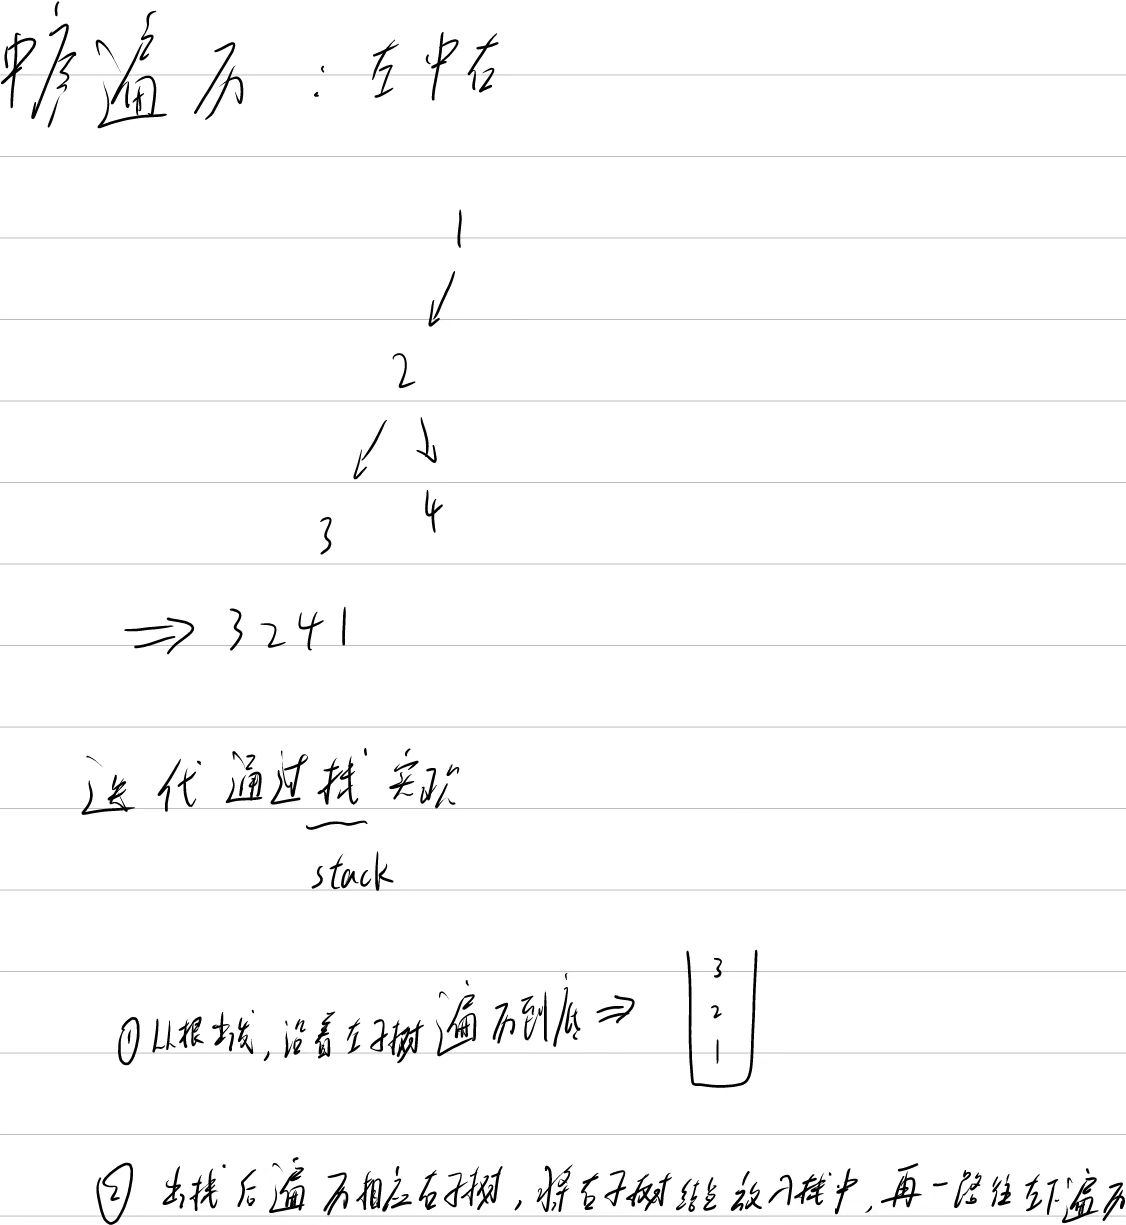 中序遍历：左中右
1
2
3 4
⇒ 3 2 4 1
迭代通过栈实现
stack
3
2
1
①从根出发，沿着左子树遍历到底⇒
② 出栈后遍历相应右子树，将右子树结点放入栈中，再一路往左下遍历